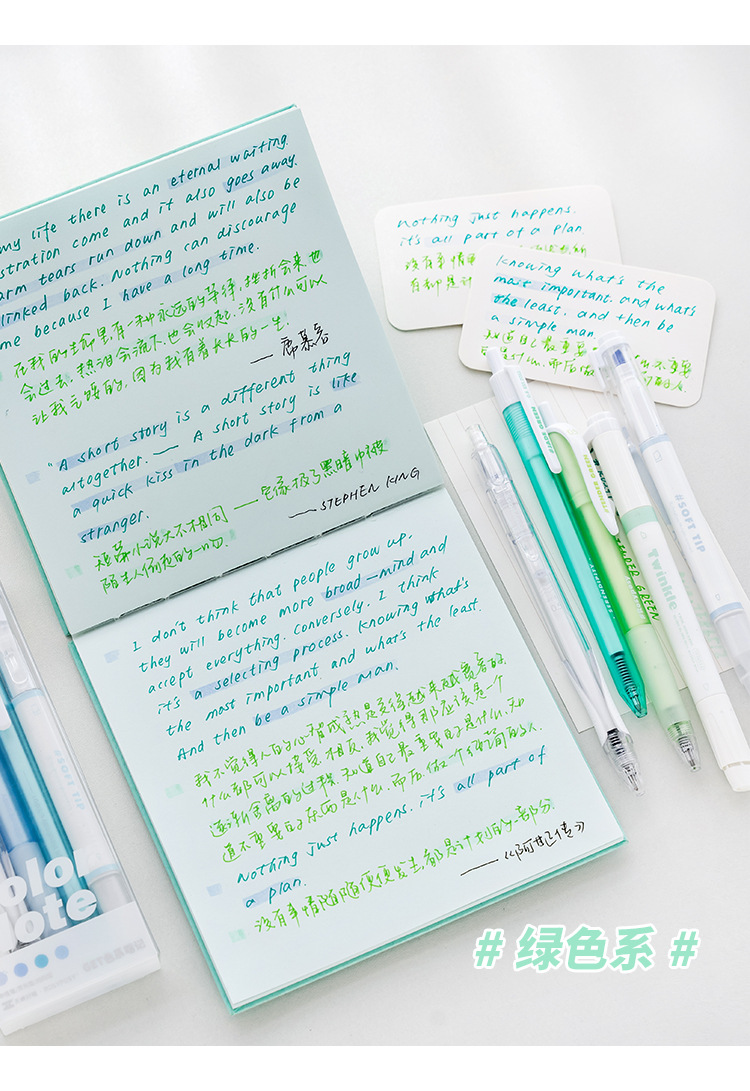 my life there is an eternal waiting.
stration come and it also goes away.
arm tears run down and will also be
linked back. Nothing can discourage
me because I have a long time.
在我的生命里,有一种永远的等待,挫折会来,也
会过去,热泪会流下,也会收起,没有什么可以
让我气馁的,因为我有着长长的一生.
——席慕蓉
"A short story is a different thing
altogether.— A short story is like
a quick kiss in the dark from a
stranger.
短篇小说大不相同——它像极了黑暗中被
陌生人偷走的一吻.
——STEPHEN KING
I don't think that people grow up.
they will become more broad-mind and
accept everything. Conversely. I think
it's a selecting process. Knowing what's
the most important. and what's the least.
And then be a simple man.
我不觉得人的心智成熟是变得越来越宽容的
什么都可以接受.相反,我觉得那应该是一个
逐渐舍离的过程.知道自己最重要的是什么,知
道不重要的东西是什么.而后,做一个简简的人.
Nothing just happens. it's all part of
a plan.
没有事情随随便便发生,都是计划的一部分
——《阿甘正传》
Nothing just happens.
it's all part of a plan.
没有事情
有都是计
Knowing what's the
most important. and what's
the least. and then be
a simple man.
知道自己最重要
是什么,而后做
#SOFT TIP
TENDER GREEN
Twinkle
#SOFT TIP
olor
ote
# 绿色系 #